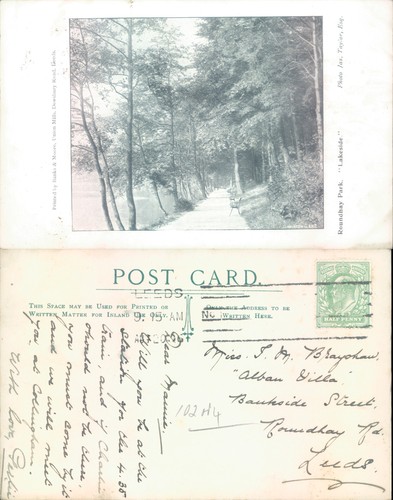 Printed by Banks & House, Union Mills, Dewsbury Road, Leeds.
Roundhay Park. "Lakeside."
Photo Jas. Taylor, Esq.
POST CARD.
THIS SPACE MAY BE USED FOR PRINTED OR
WRITTEN MATTER FOR INLAND USE ONLY.
ONLY FOR ADDRESS TO BE
WRITTEN HERE.
LEEDS
HALF PENNY
Dear
Will you be at the
station for the 4.35
train, and if Charlie
should not be there
you must come by it
and we will meet
you at
With love
Miss J. M. Brayshaw
"Alban Villa"
Bankside Street,
Roundhay Rd.
Leeds.